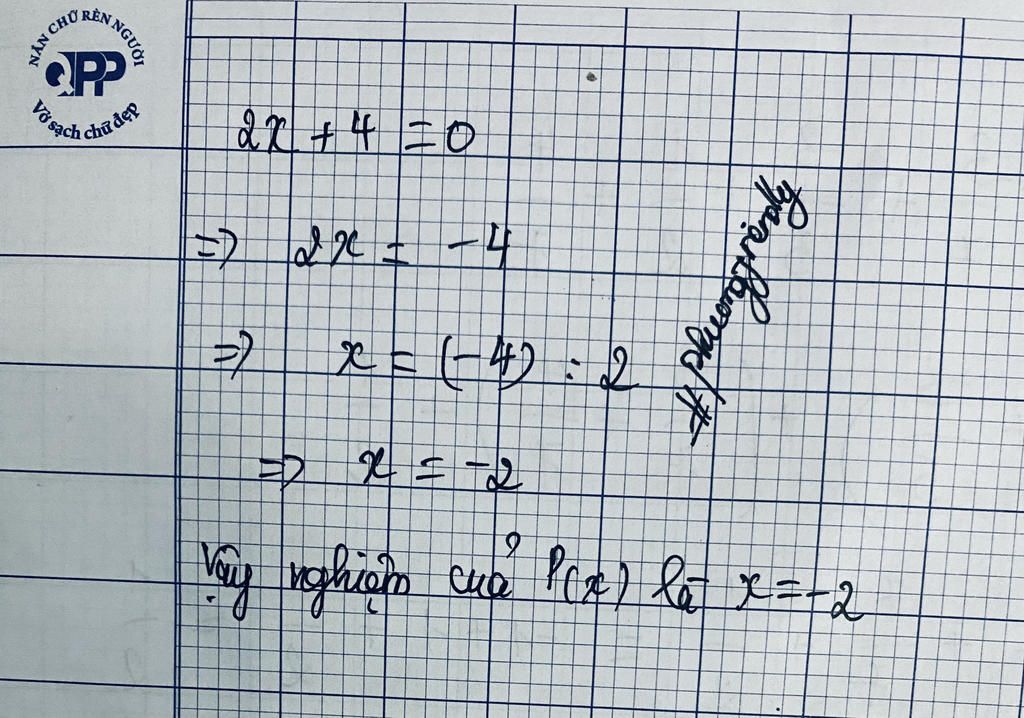 NẮN CHỮ RÈN NGƯỜI
QPP
Vở sạch chữ đẹp
2x + 4 = 0
=> 2x = -4
=> x = (-4) : 2
=> x = -2
Vậy nghiệm của P(x) là x = -2
#phuongfriendly